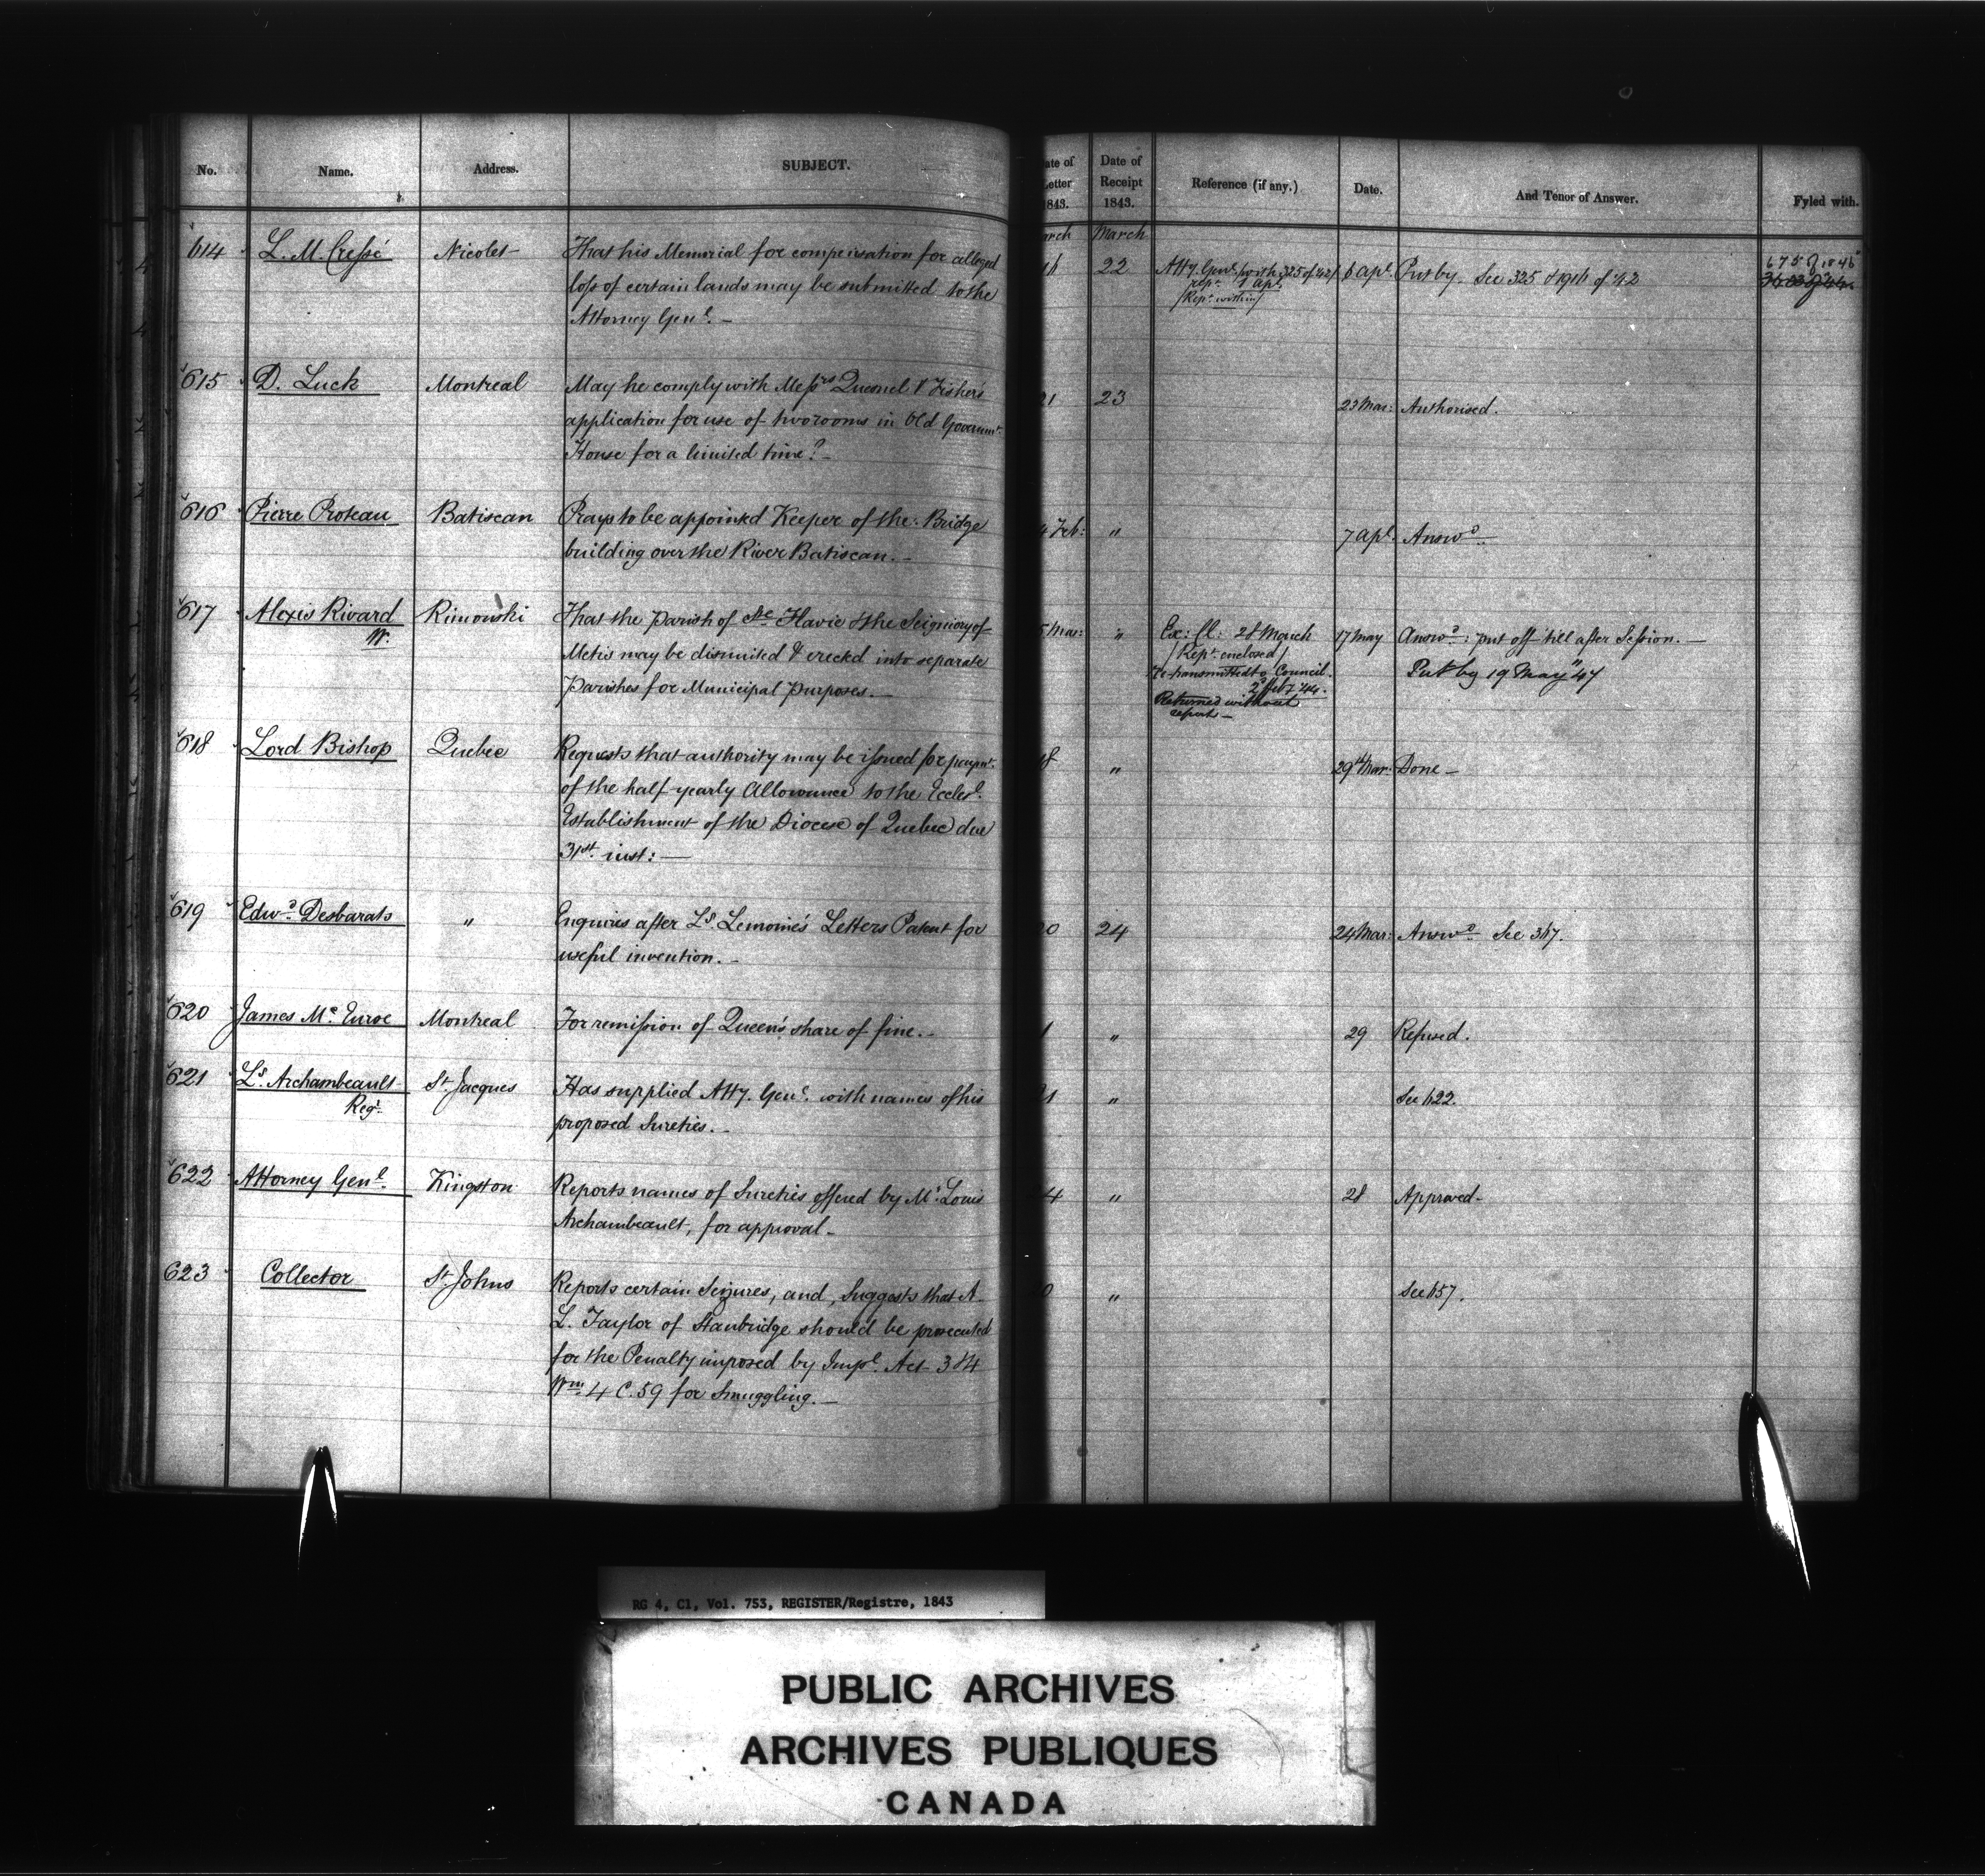 No. Name. Address. SUBJECT.
614 L. M. Cressé Nicolet That his Memorial for compensation for alleged
loss of certain lands may be submitted to the
Attorney Genl. —
615 D. Luck Montreal May he comply with Messrs Quesnel & Fisher's
application for use of two rooms in Old Governmt.
House for a limited time? —
616 Pierre Proteau Batiscan Prays to be appointed Keeper of the Bridge
building over the River Batiscan. —
617 Alexis Rivard Rimouski That the Parish of Ste Flavie & the Seigniory of
W. Metis may be disunited & erected into separate
Parishes for Municipal purposes. —
618 Lord Bishop Quebec Requests that authority may be issued for paymt.
of the half-yearly Allowance to the Eccles l.
Establishment of the Diocese of Quebec due
31st. inst: —
619 Edwd. Desbarats " Enquires after Ls. Lemoine's Letters Patent for
useful invention. —
620 James Mc. Montreal For remission of Queen's share of fine. —
621 Ls. Archambeault St. Jacques Has supplied Atty. Genl. with names of his
Regr. proposed Sureties. —
622 Attorney Genl. Kingston Reports names of Sureties offered by Mr. Louis
Archambeault, for approval —
623 Collector St. Johns Reports certain Seizures, and, suggests that A.
L. Taylor of Stanbridge should be prosecuted
for the Penalty imposed by Impl. Act 3 & 4
Wm. 4 C. 59 for Smuggling. —
ate of
etter
1843.
Date of
Receipt
1843.
Reference (if any.) Date. And Tenor of Answer. Fyled with.
arch March
16 22 Atty. Genl. (with 325 of 42) 6 apl. Put by. See 325 & 1916 of 42 675 of 1846
rept. 1 apl.
(Rept. within)
21 23 23 Mar: Authorised.
4 Feb: " 7 apl. Answd.
5 Mar: " Ex: Cl: 28 March 17 May Answd: put off till after Session. —
(Rept. enclosed) Put by 19 May "47
Re-transmitted to Council
2 feby 44.
Returned without
report —
18 " 29th Mar: Done —
20 24 24 Mar: Answd. See 367.
1 " 29 Refused.
21 " See 622.
24 " 28 Approved —
20 " See 657.
RG 4, C1, Vol. 753, REGISTER/Registre, 1843
PUBLIC ARCHIVES
ARCHIVES PUBLIQUES
CANADA